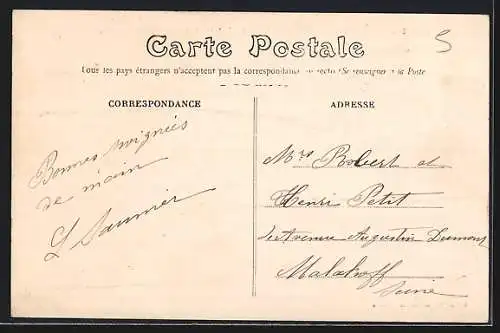 5
Carte Postale
Tous les pays étrangers n'acceptent pas la correspondance recto (Se renseigner à la Poste
CORRESPONDANCE
ADRESSE
Bonnes poignées
de main
L Saunier
Mrs Robert et
Henri Petit
Avenue Augustin Dumont
Malakoff
Seine